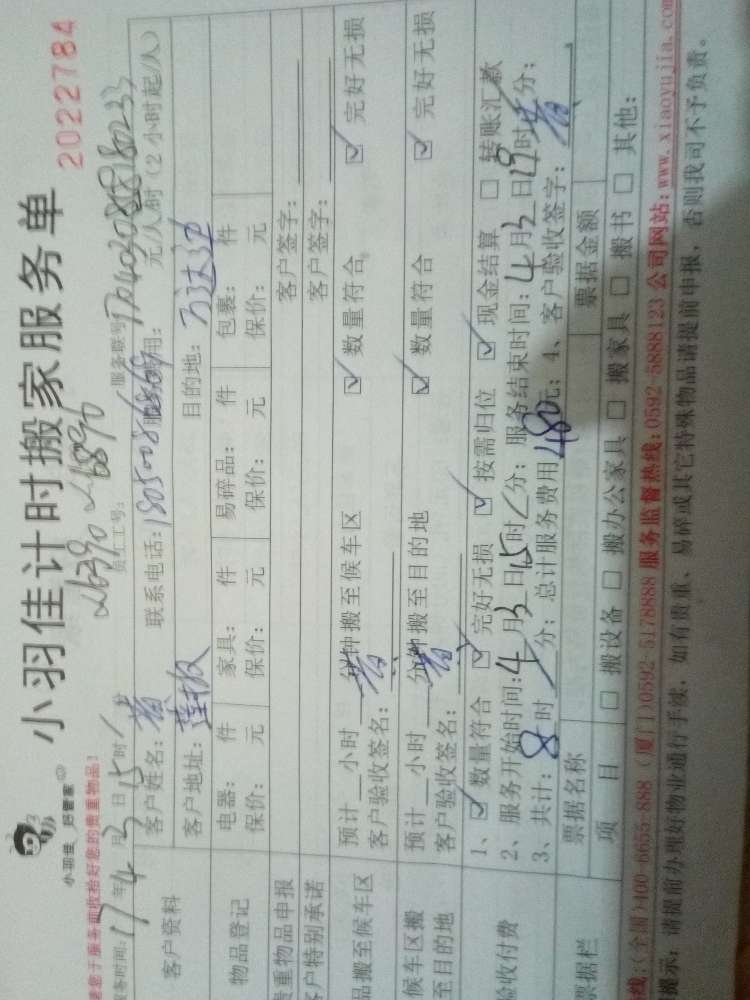 小羽佳计时搬家服务单
2022784
小羽佳 好管家
请您于服务前收拾好您的贵重物品!
员工工号: 服务联号
服务时间: 17年4月3日15时
客户资料 客户姓名: 黄 联系电话: 元/人/时 (2小时起/人)
客户地址: 莲坂 目的地: 万达边
物品登记 电器: 件 家具: 件 易碎品: 件 包裹: 件
保价: 元 保价: 元 保价: 元 保价: 元
贵重物品申报 客户签字:
客户特别承诺 客户签字:
品搬至候车区 预计__小时__分钟搬至候车区 ☑ 数量符合 ☑ 完好无损
客户验收签名: 黄
候车区搬至目的地 预计__小时__分钟搬至目的地 ☑ 数量符合 ☑ 完好无损
客户验收签名: 黄
验收付费 1、☑ 数量符合 ☑ 完好无损 ☑ 按需归位 ☑ 现金结算 □ 转账汇款
2、服务开始时间:4月3日15时/分; 服务结束时间:4月3日19时 分;
3、共计: 8时/分; 总计服务费用480元; 4、客户验收签字: 黄
票据栏 票据名称 票据金额
项目 □ 搬设备 □ 搬办公家具 □ 搬家具 □ 搬书 □ 其他:
线:(全国)400-6655-888 (厦门)0592-5178888 服务监督热线:0592-5888123 公司网站:www.xiaoyujia.com
提示: 请提前办理好物业通行手续, 如有贵重、易碎或其它特殊物品请提前申报, 否则我司不予负责。